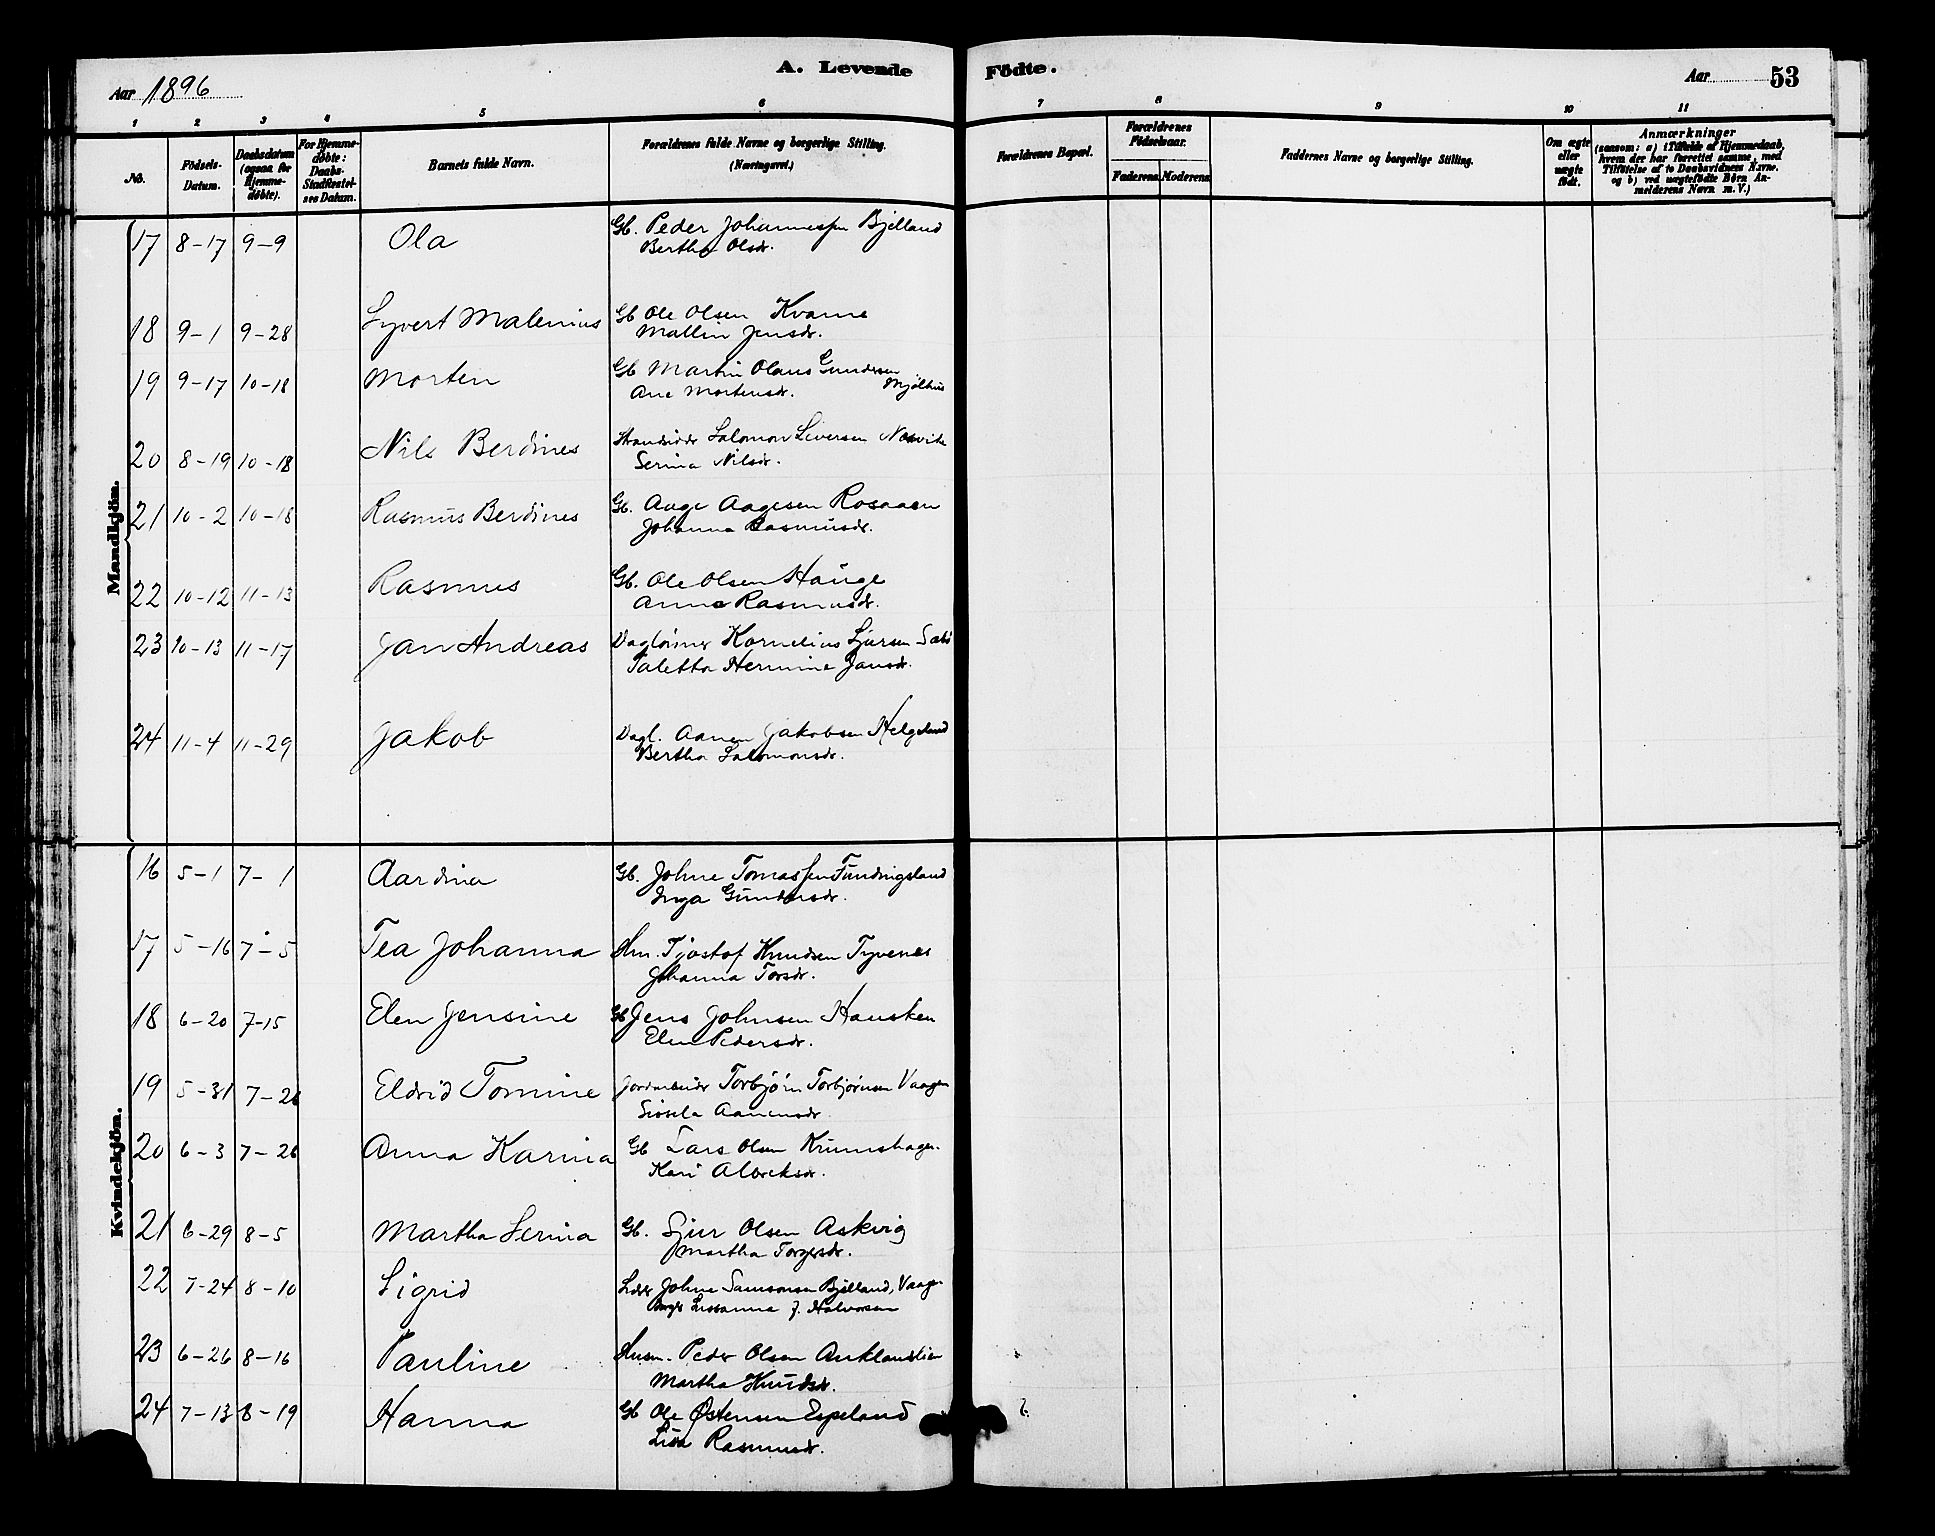 A. Levende Födte.
Aar 1896
Aar 53
1 2 3 4 5 6 7 8 9 10 11
No.
Födsels-Datum.
Daabsdatum (ogsaa for Hjemme-döbte).
For Hjemme-döbte: Daabs-Stadfæstel-ses Datum.
Barnets fulde Navn.
Forældrenes fulde Navne og borgerlige Stilling.
(Næringsvei.)
Forældrenes Bopæl.
Forældrenes Födselsaar.
Faderens. Moderens.
Faddernes Navne og borgerlige Stilling.
Om ægte eller uægte födt.
Anmærkninger
(saasom: a) i Tilfælde af Hjemmedaab,
hvem der har forrettet samme, med
Tilföielse af to Daabsvidners Navne.
og b) ved uægtefödte Börn An-
melderens Navn m. V.)
Mandkjön.
17 8-17 9-9 Ola Gb. Peder Johannessen Bjelland
Bertha Olsdr.
18 9-1 9-28 Syvert Malenius Gb Ole Olsen Kvame
Mallin Jensdr.
19 9-17 10-18 Morten Gb Martin Olaus Gundersen Mjølhus
Ane Mortensdr.
20 8-19 10-18 Nils Berdines Strandsidder Salomon Siversen Nesvik
Serina Nilsdr.
21 10-2 10-18 Rasmus Berdines Gb. Aage Aagesen Rosaaen
Johanna Rasmusdr.
22 10-12 11-13 Rasmus Gb. Ole Olsen Hauge
Anna Rasmusdr.
23 10-13 11-17 Jan Andreas Daglönner Kornelius Sjursen
Taletta Hermine Jansdr.
24 11-4 11-29 Jakob Dagl. Aanen Jakobsen Helgeland
Bertha Salomonsdr.
Kvindekjön.
16 5-1 7-1 Aardina Gb. Johne Tomassen Fundingsland
Inga Gundersdr.
17 5-16 7-5 Tea Johanna Hm. Tjostof Knudsen Tyvenes
Johanna Torsdr.
18 6-20 7-15 Elen Jensine Gb Jens Johnsen Hausken
Elen Pedersdr.
19 5-31 7-26 Eldrid Tomine Torbjørn Torbjørnsen Vaage
Sissela Aanensdr.
20 6-3 7-26 Anna Karina Gb Lars Olsen Krunshagen.
Kari Albrektsdr.
21 6-29 8-5 Martha Serina Gb. Sjur Olsen Askvig
Martha Torgersdr.
22 7-24 8-10 Sigrid Johne Samsonsen Bjelland, Vaage
Susanna J. Halvorsen
23 6-26 8-16 Pauline Husm. Peder Olsen Anklandslien
Martha Knudsdr.
24 7-13 8-19 Hanna Gb Ole Østensen Espeland
Lisa Rasmusdr.